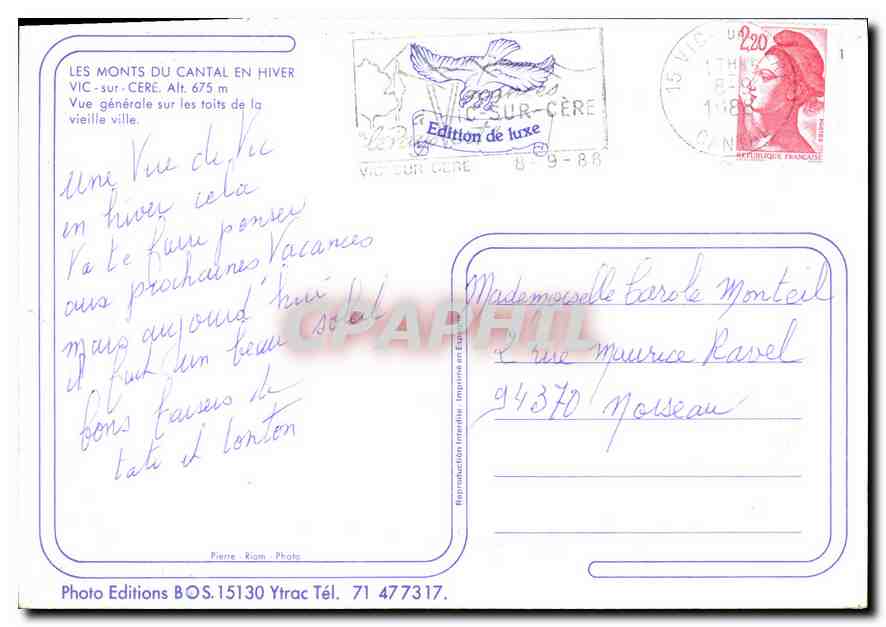 LES MONTS DU CANTAL EN HIVER
VIC - sur - CERE. Alt. 675 m
Vue générale sur les toits de la
vieille ville.
Une Vue de Vic
en hiver cela
va te faire penser
aux prochaines Vacances
mais aujourd'hui
il fait un beau soleil
bons baisers de
tati et tonton
Pierre - Riom - Photo
Photo Editions BOS. 15130 Ytrac Tél. 71 477317.
Reproduction Interdite. Imprimé en
VIC-SUR-CÈRE
Edition de luxe
VIC SUR CERE 8-9-88
15 VIC
2,20
REPUBLIQUE FRANÇAISE
1
Mademoiselle Carole Monteil
2 rue Maurice Ravel
94370 Noiseau
CPAPHIL